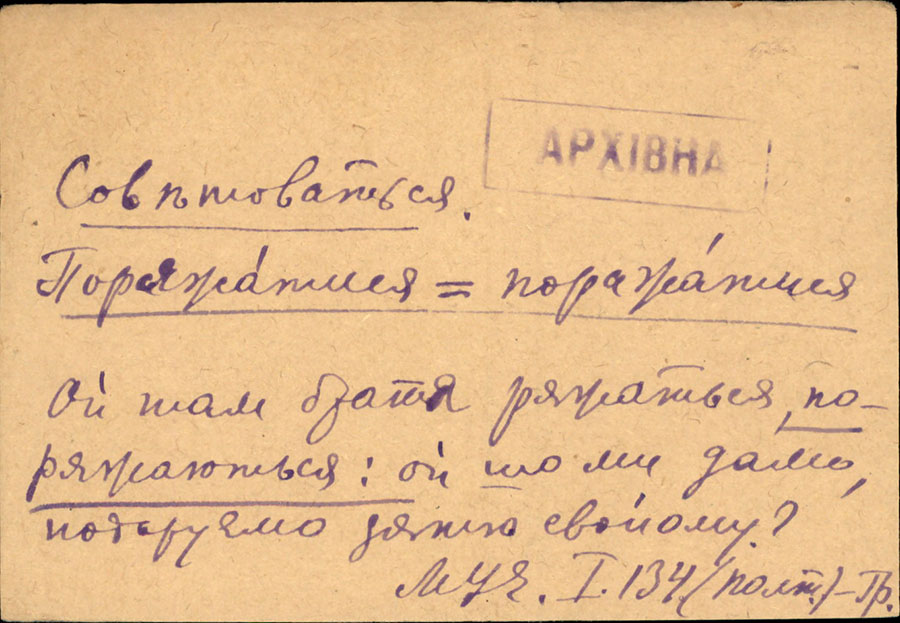 АРХІВНА
Совѣтоваться.
Поряжа́тися = поража́тися
Ой там браття ряжаться, по-
ряжаються: ой що ми дамо,
подаруємо зятю свойому?
МУЕ. I. 134. (Полт.) – Гр.